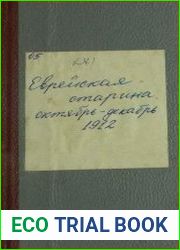 Еврейская
старина
октябрь-декабрь
1912
ECO TRIAL BOOK